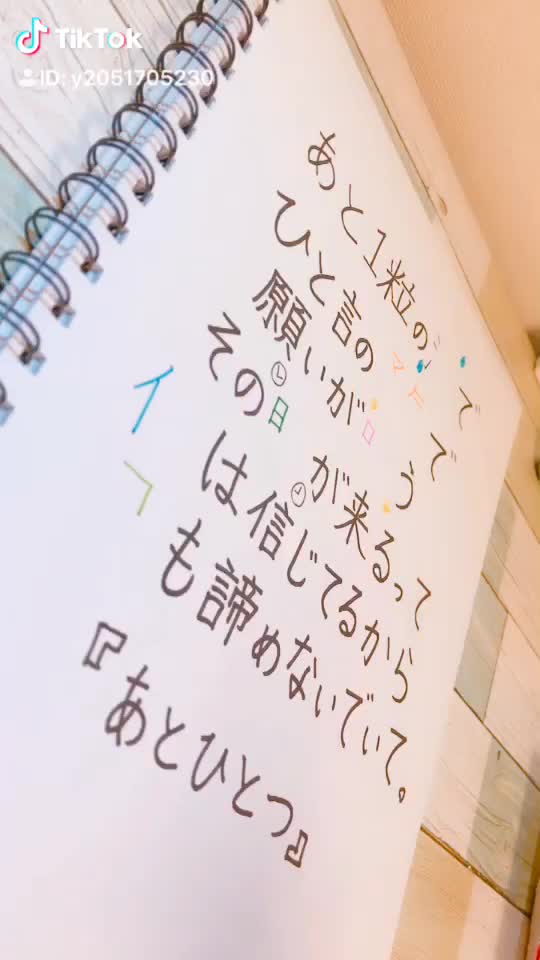 TikTok
ID: y2051705230
あと1粒の で
ひと言の マ で
願いが 口 う
その日 が来るって
イ は信じてるから
も諦めないでいて。
『あとひとつ』